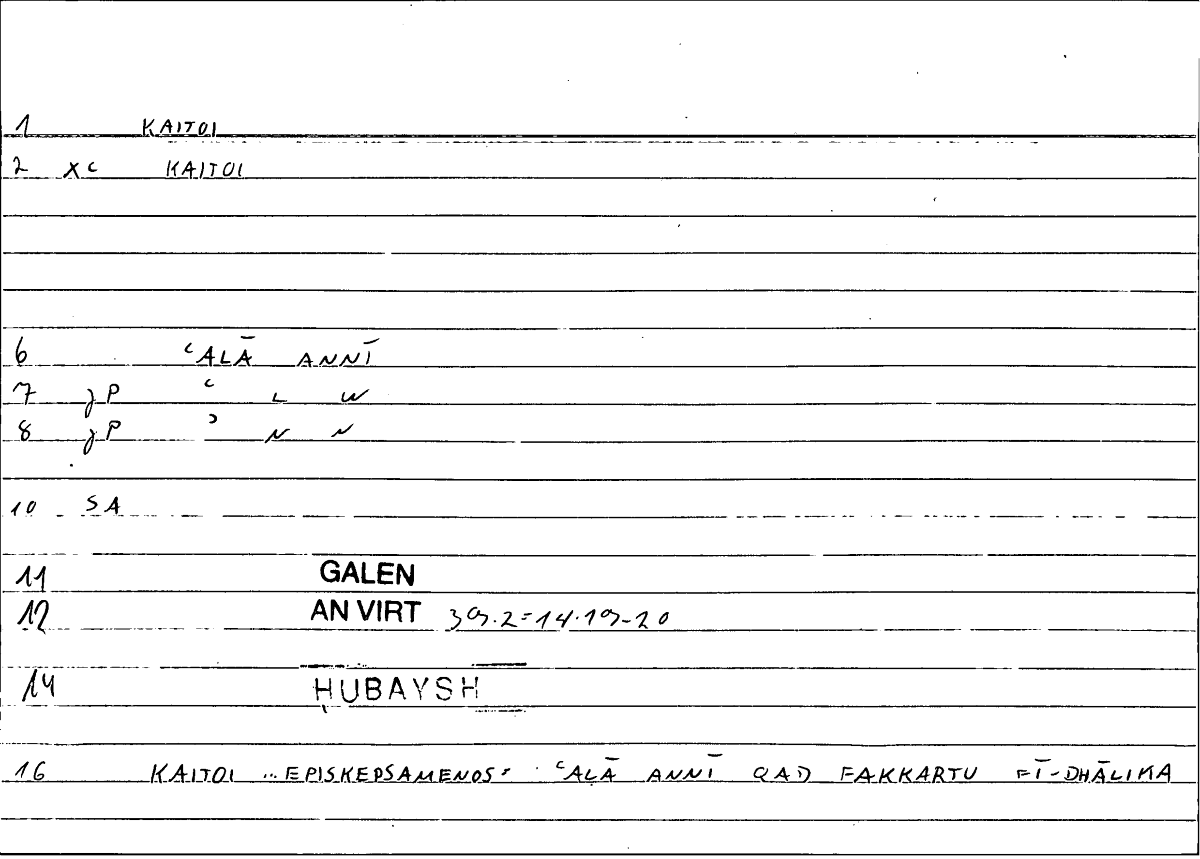 1 KAITOI
2 xc KAITOI
6 ʿALĀ ANNĪ
7 jP ʿ L W
8 jP ʾ N N
10 SA
11 GALEN
12 AN VIRT 39.2=14.19-20
14 ḤUBAYSH
16 KAITOI ... EPISKEPSAMENOS: ʿALĀ ANNĪ QAD FAKKARTU FĪ-DHĀLIKA